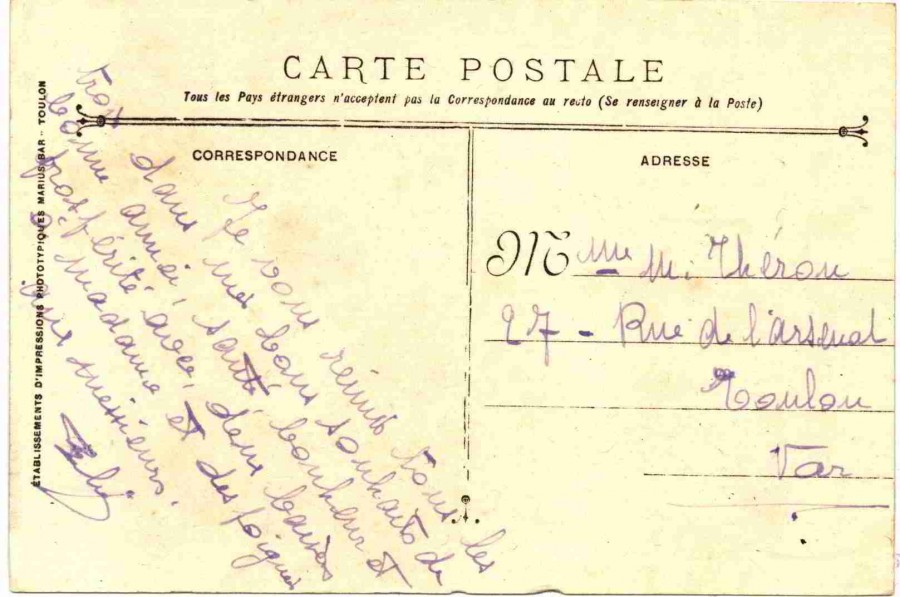 CARTE POSTALE
Tous les Pays étrangers n'acceptent pas la Correspondance au recto (Se renseigner à la Poste)
CORRESPONDANCE
Je vous réunis tous les
trois dans mes bons souhaits de
bonne année, santé bonheur et
prospérité avec deux baisers
à madame et des poignées
aux messieurs.
ADRESSE
M me M. Théron
27 - Rue de l'arsenal
Toulon
Var
ÉTABLISSEMENTS D'IMPRESSIONS PHOTOTYPIQUES MARIUS BAR - TOULON